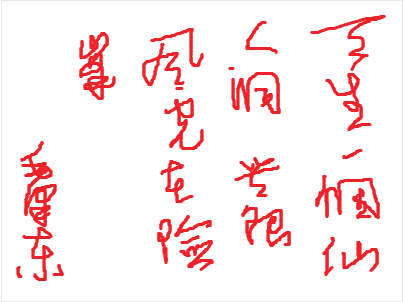 天生一個仙
人洞無限
风光在險
峯
毛澤东